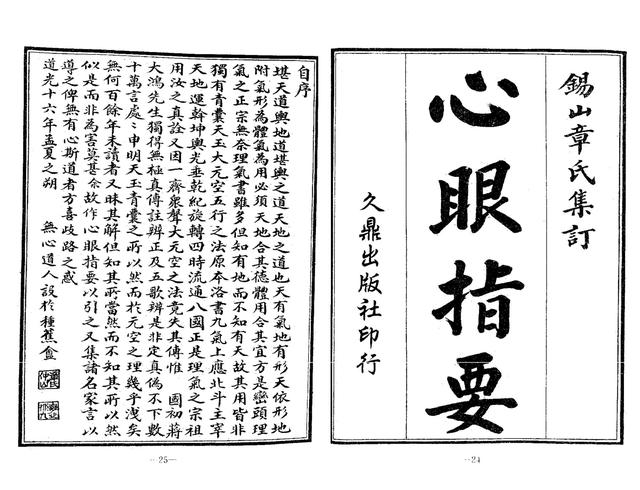 錫山章氏集訂
心眼指要
久鼎出版社印行
24
自序
堪天道輿地道堪輿之道天地之道也天有氣地有形天依形地
附氣形為體氣為用必須天地合其德體用合其宜方是巒頭理
氣之正宗無奈理氣書雖多但知有地而不知有天故其用皆非
獨有青囊天玉大元空五行之法原本洛書九氣上應北斗主宰
天地運幹坤輿光垂乾紀旋轉四時流通八國正是理氣之宗祖
用汝之真詮又因一齊衆聲大元空之法竟失其傳惟 國初蔣
大鴻先生獨得無極真傳註辨正及五歌辨是非定真偽不下數
十萬言處〻申明天玉青囊之所以然而於元空之理幾乎洩矣
無何百餘年未讀者又昧其解但知其所當然而不知其所以然
似是而非為害莫甚僉故作心眼指要以引之又集諸名家言以
導之俾無有心斯道者方喜歧路之惑
道光十六年孟夏之朔 無心道人設於種蕉盦
—25—